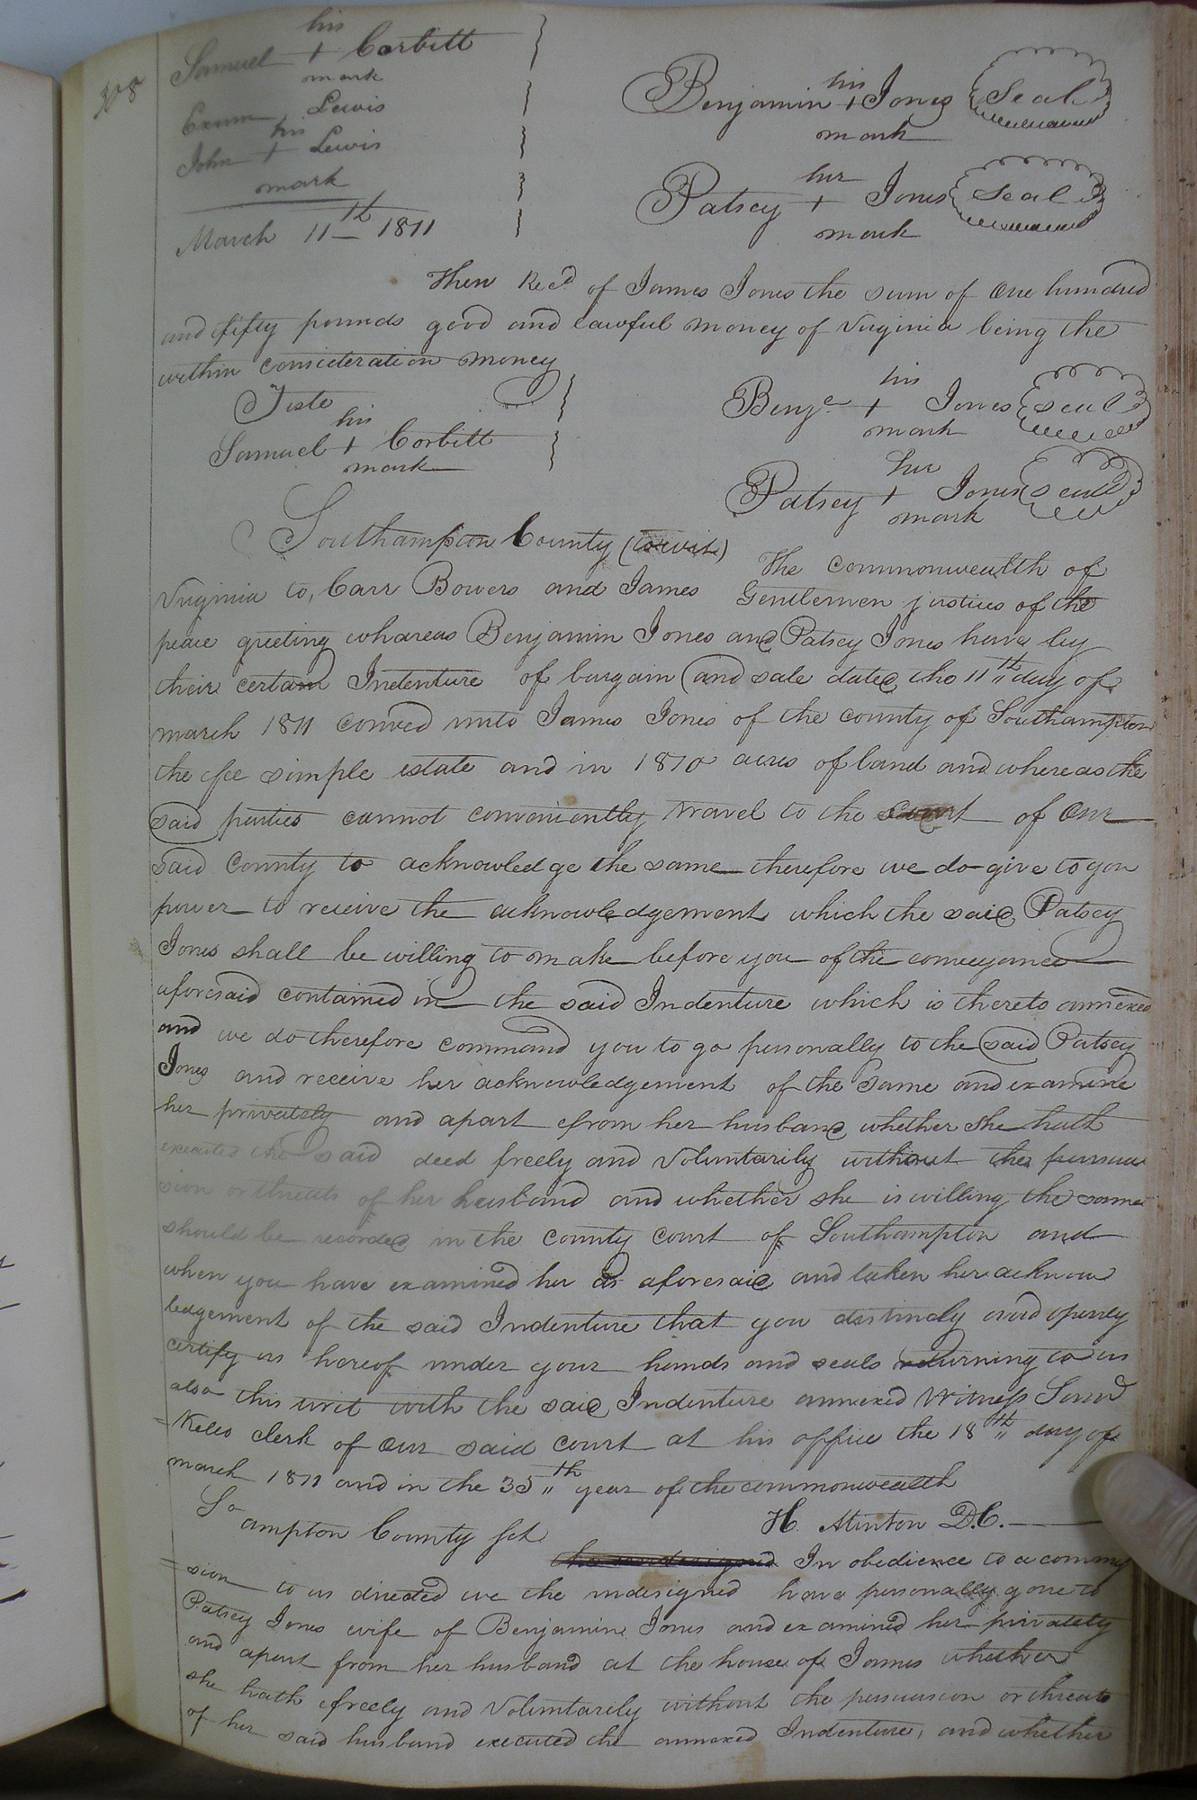 his
Samuel + Corbitt
mark
Exum Lewis
his
John + Lewis
mark
March 11th 1811
his
Benjamin + Jones Seal
mark
her
Patsey + Jones Seal
mark
Then Recd of James Jones the sum of One hundred
and fifty pounds good and lawful money of Virginia being the
within consideration money
Teste
his
Samuel + Corbitt
mark
his
Benja + Jones seal
mark
her
Patsey + Jones seal
mark
Southampton County (towit) The commonwealth of
Virginia to, Carr Bowers and James Gentlemen justices of the
peace greeting whareas Benjamin Jones and Patsey Jones have by
their certam Indenture of bargain and sale dated the 11th day of
march 1811 conved unto James Jones of the county of Southampton
the fee simple estate and in 1810 acres of land and whereas the
said parties cannot conveniently travel to the court of Our
said County to acknowledge the same therefore we do give to you
power to receive the acknowledgement which the said Patsey
Jones shall be willing to make before you of the conveyance
aforesaid contained in the said Indenture which is thereto annexed
and we do therefore command you to go personally to the said Patsey
Jones and receive her acknowledgement of the same and examine
her privately and apart from her husband whether she hath
executed the said deed freely and Voluntarily without the persua
sion or threats of her husband and whether she is willing the same
should be recorded in the county court of Southampton and
when you have examined her as aforesaid and taken her acknow
ledgement of the said Indenture that you distinctly and openly
certify us hereof under your hands and seals returning to us
also this writ with the said Indenture annexed Witness Saml
= Kello clerk of Our said court at his office the 18th day of
march 1811 and in the 35th year of the commonwealth
H. Minton D.C.
So ampton County sct
the undersigned In obedience to a commis
= sion to us directed we the undesigned have personally gone to
Patsey Jones wife of Benjamin Jones and examined her privately
and apart from her husband at the house of James whether
she hath freely and Voluntarily without the persuasion or threats
of her said husband executed the annexed Indenture, and whether